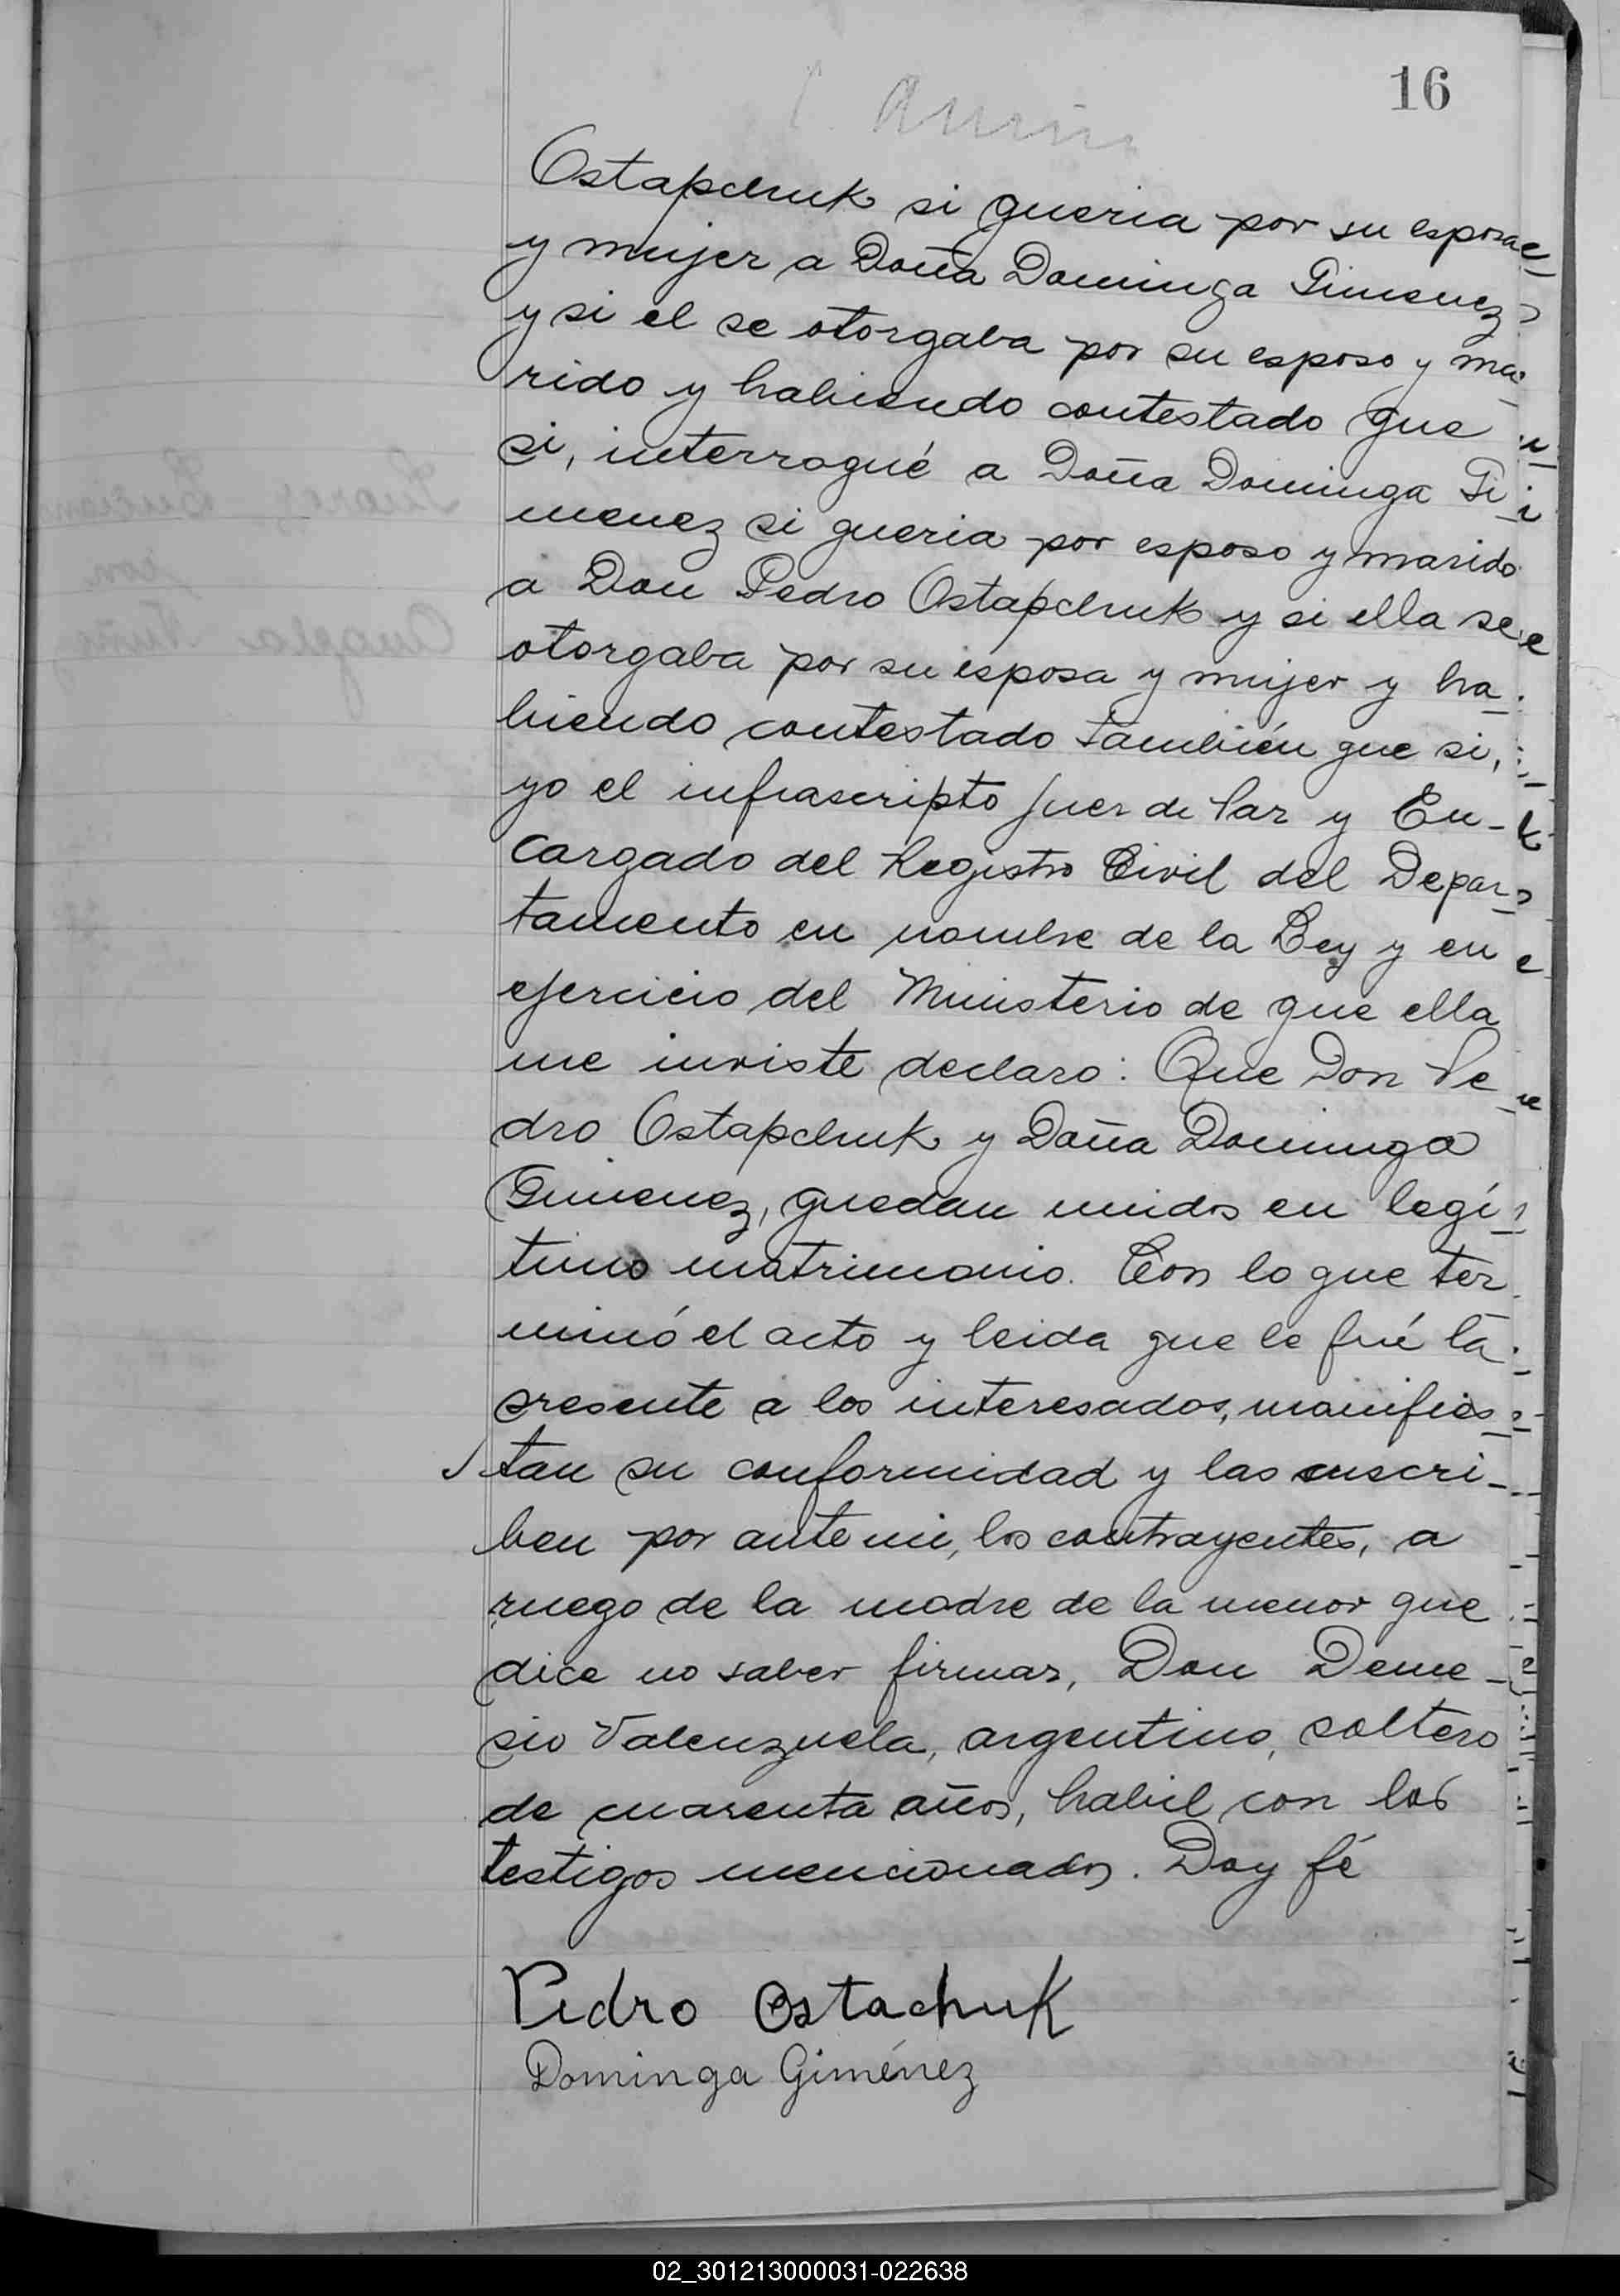 16
Ostapchuk si queria por su esposa
y mujer a Doña Dominga Gimenez
y si el se otorgaba por su esposo y ma-
rido y habiendo contestado que
si, interrogué a Doña Dominga Gi
menez si queria por esposo y marido
a Don Pedro Ostapchuk y si ella se
otorgaba por su esposa y mujer y ha-
biendo contestado también que si,
yo el infrascripto Juez de Paz y En-
cargado del Registro Civil del Depar-
tamento en nombre de la Ley y en
ejercicio del Ministerio de que ella
me inviste declaro: Que Don Pe
dro Ostapchuk y Doña Dominga
Gimenez, quedan unidos en legí-
timo matrimonio. Con lo que ter
minó el acto y leida que le fué la
presente a los interesados, manifies-
tan su conformidad y las suscri-
ben por ante mi, los contrayentes, a
ruego de la madre de la menor que
dice no saber firmar, Don Deme-
sio Valenzuela, argentino, soltero
de cuarenta años, habil con los
testigos mencionados. Doy fé
Pedro Ostachuk
Dominga Giménez
02_301213000031-022638